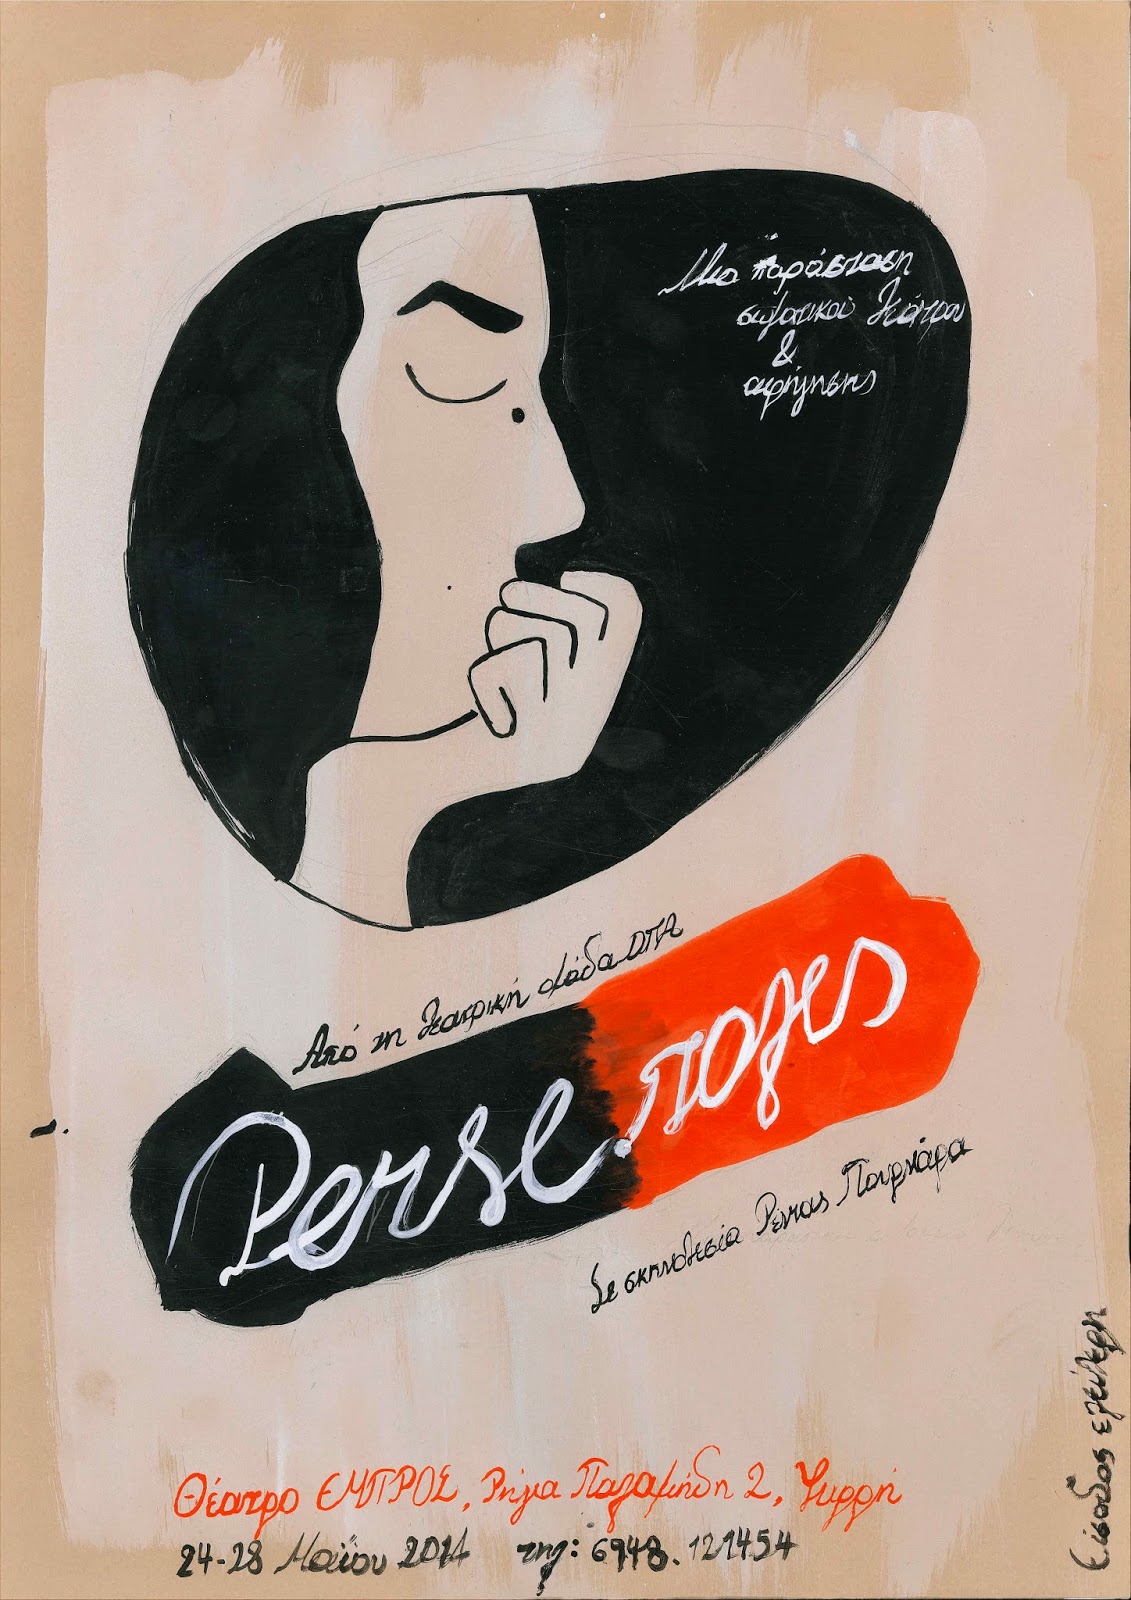 Μια παράσταση
σωματικού θεάτρου
&
αφήγησης
Από τη θεατρική ομάδα ΟΠΑ
Perse.πολις
Σε σκηνοθεσία Ρέντας Πουρνάρα
Είσοδος ελεύθερη
Θέατρο ΕΜΠΡΟΣ, Ρήγα Παλαμήδη 2, Ψυρρή
24-28 Μαΐου 2014 τηλ: 6948.121454